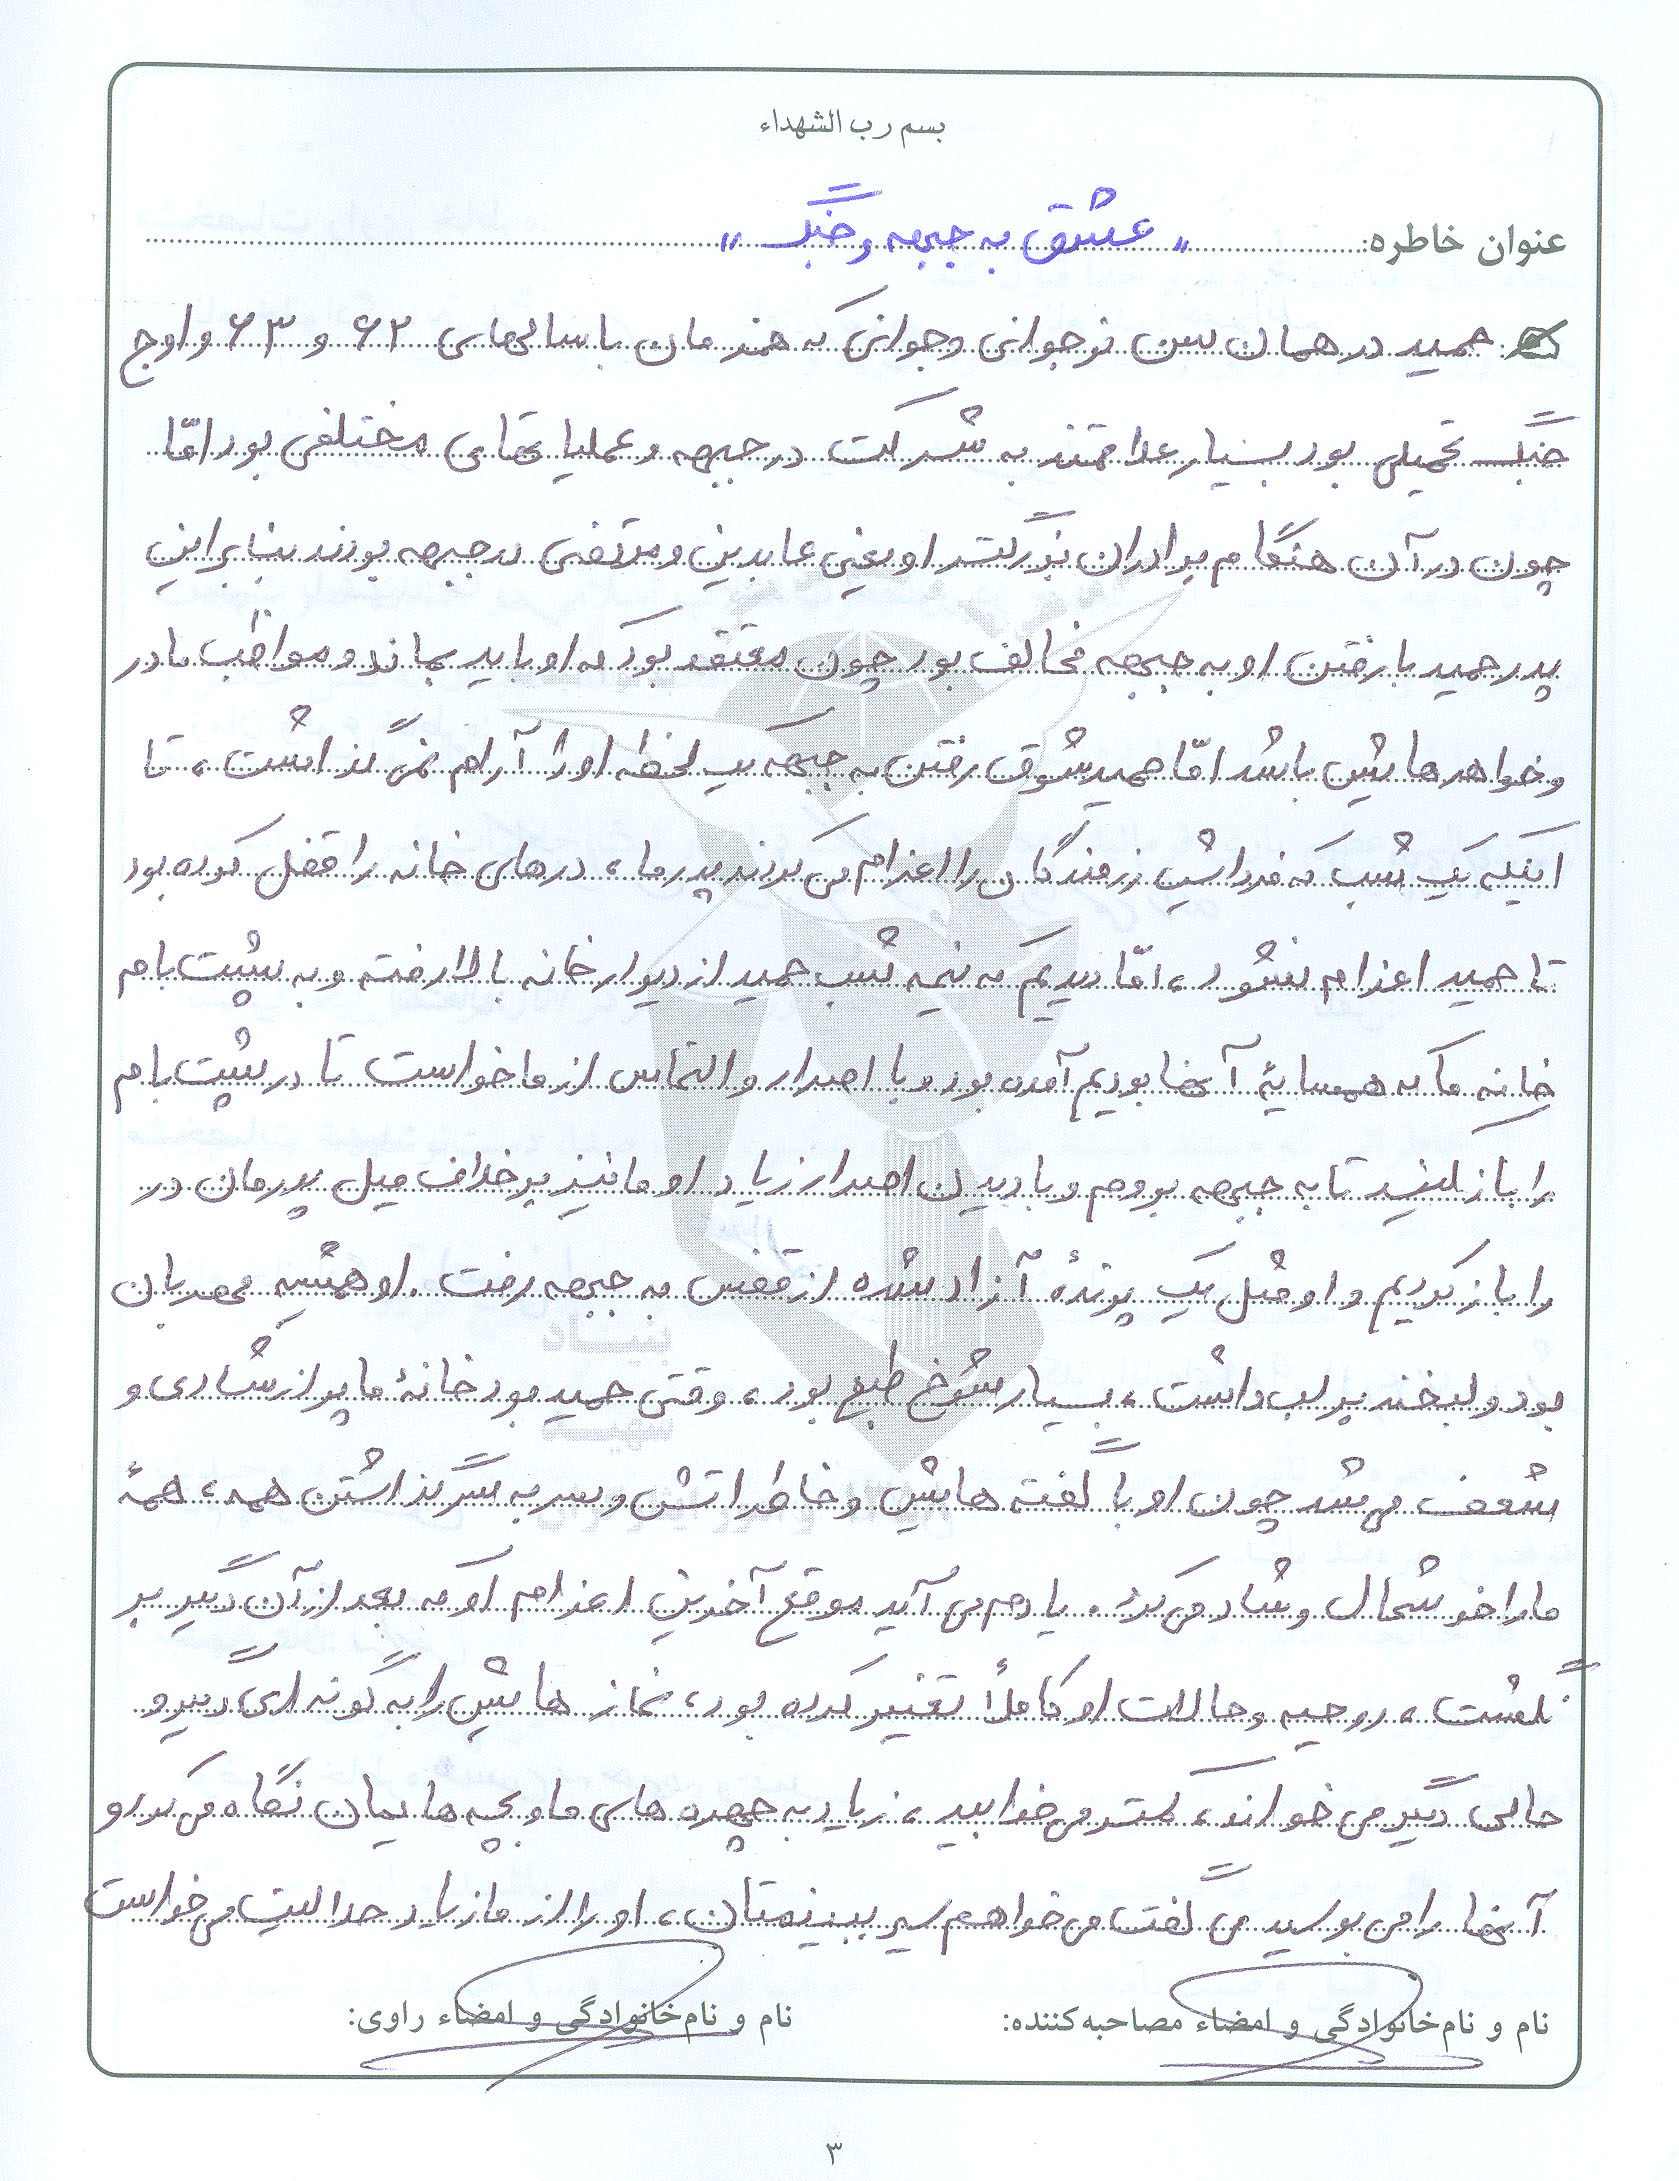 بسم رب الشهداء
عنوان خاطره: « عشق به جبهه و جنگ »
حمید در همان سن نوجوانی و جوانی که همزمان با سالهای ۶۲ و ۶۳ و اوج
جنگ تحمیلی بود بسیار علاقمند به شرکت در جبهه و عملیاتهای مختلفی بود امّا
چون در آن هنگام برادران بزرگتر او یعنی عابدین و مرتضی در جبهه بودند بنابراین
پدر حمید با رفتن او به جبهه مخالف بود چون معتقد بود که او باید بماند و مواظب مادر
و خواهرهایش باشد امّا حمید شوق رفتن به جبهه یک لحظه او را آرام نمی گذاشت، تا
اینکه یک شب که فردایش رزمندگان را اعزام می کردند پدر ما، درهای خانه را قفل کرده بود
تا حمید اعزام نشود، امّا دیدیم که نیمه شب حمید از دیوار خانه بالا رفته و به پشت بام
خانه ما که همسایهٔ آنها بودیم آمده بود و با اصرار و التماس از ما خواست تا در پشت بام
را باز کنید تا به جبهه بروم و با دیدن اصرار زیاد او ما نیز بر خلاف میل پدرمان در
را باز کردیم و او مثل یک پرندهٔ آزاد شده از قفس به جبهه رفت. او همیشه مهربان
بود و لبخند بر لب داشت، بسیار شوخ طبع بود، وقتی حمید بود خانهٔ ما پر از شادی و
شعف می شد چون او با گفته هایش و خاطراتش و سر به سر گذاشتن همه، همهٔ
ما را خوشحال و شاد می کرد. یادم می آید موقع آخرین اعزام او که بعد از آن دیگر بر
نگشت، روحیه و حالات او کاملاً تغییر کرده بود، نماز هایش را به گونه ای دیگر و
حالی دیگر می خواند، کمتر می خوابید، زیاد به چهره های ما و بچه هایمان نگاه می کرد و
آنها را می بوسید می گفت می خواهم سیر ببینمتان، او را از ما زیاد حلالیت می خواست
نام و نام خانوادگی و امضاء مصاحبه کننده:
نام و نام خانوادگی و امضاء راوی:
۳